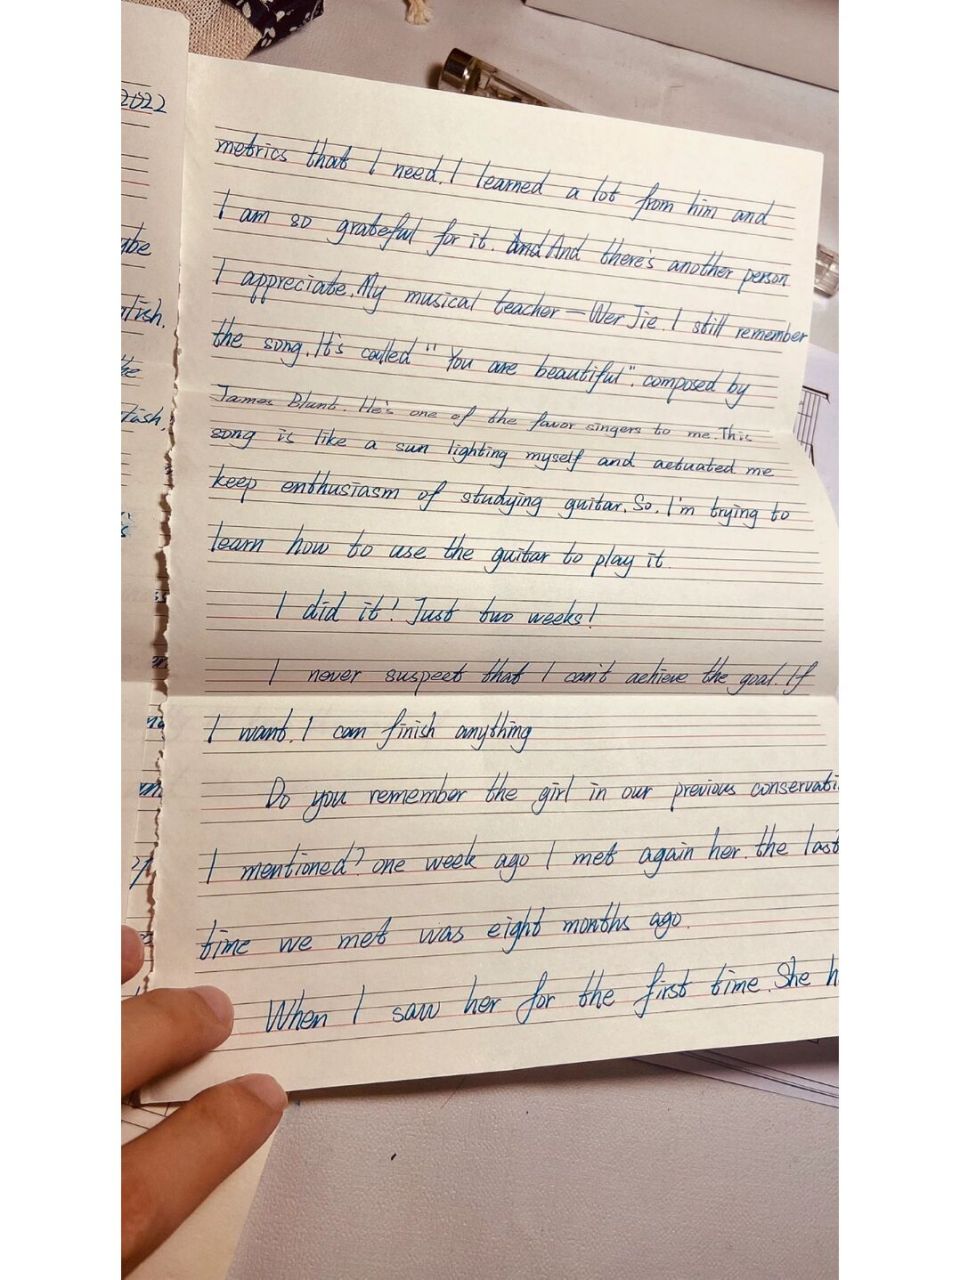 2022
metrics that I need. I learned a lot from him and
I am so grateful for it. And And there's another person
I appreciate. My musical teacher — Wer Jie. I still remember
the song. It's called "You are beautiful". composed by
James Blunt. He's one of the favor singers to me. This
song is like a sun lighting myself and actuated me
keep enthusiasm of studying guitar. So. I'm trying to
learn how to use the guitar to play it
I did it! Just two weeks!
I never suspect that I can't achieve the goal. If
I want. I can finish anything
Do you remember the girl in our previous conservati
I mentioned? one week ago I met again her. the last
time we met was eight months ago.
When I saw her for the first time. She h